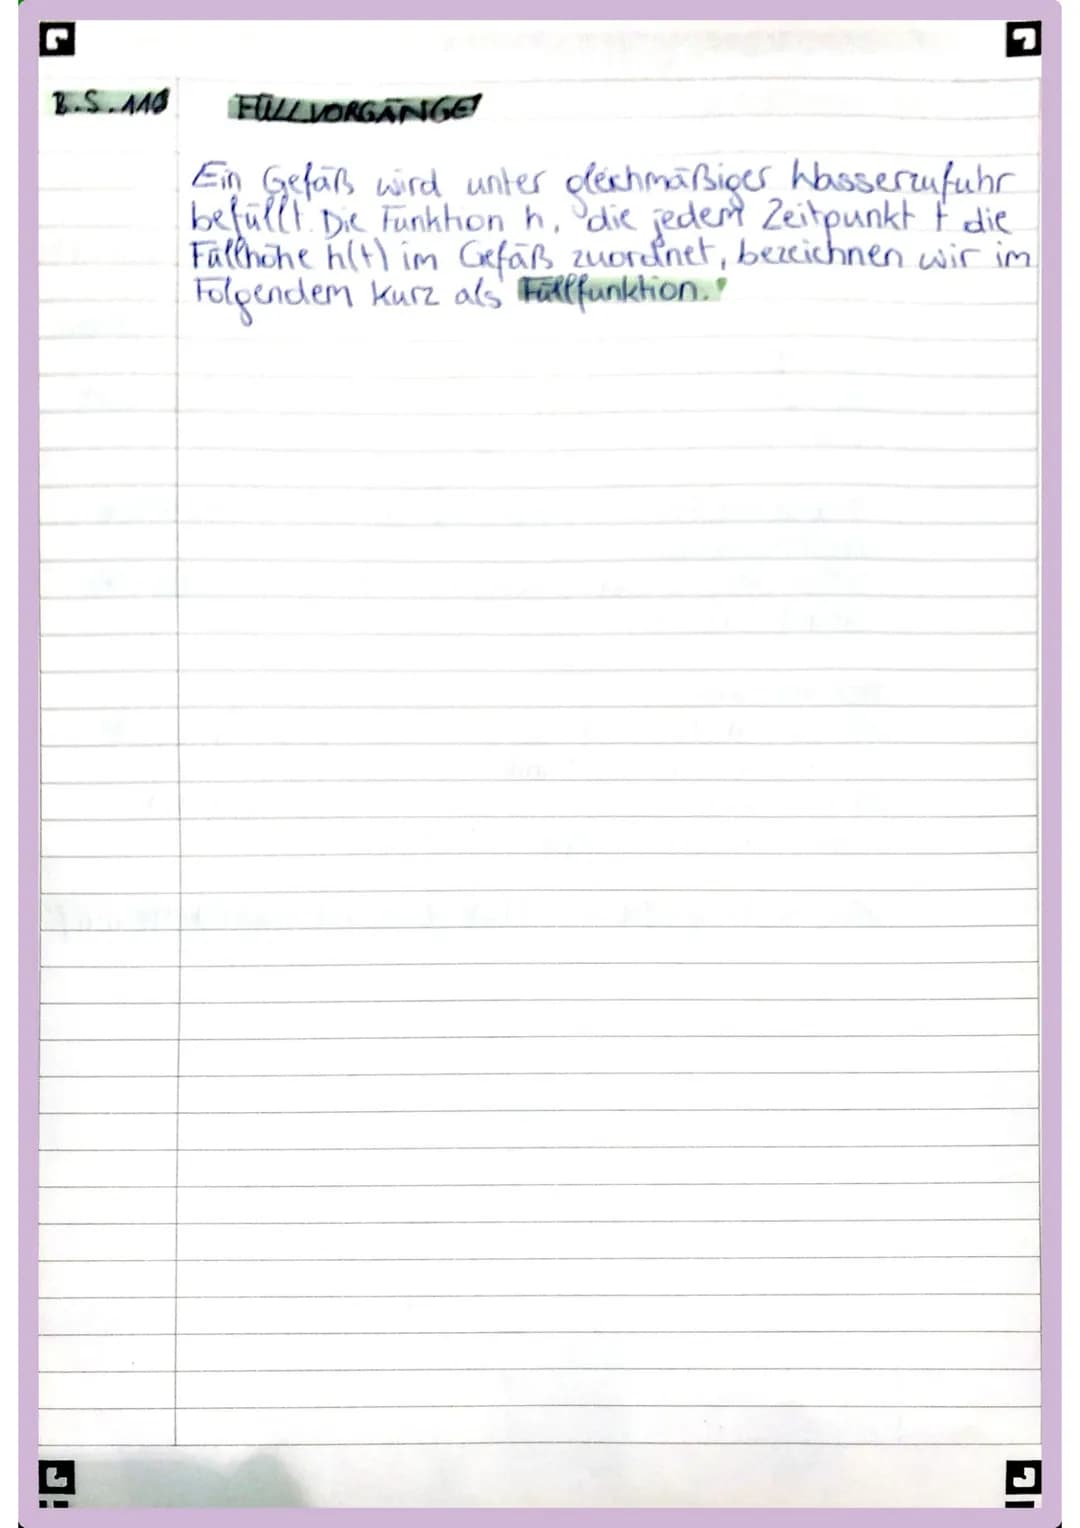 B.S. 110 FÜLLVORGÄNGE
Ein Gefäß wird unter gleichmäßiger Wasserzufuhr
befüllt. Die Funktion h, die jedem Zeitpunkt t die
Füllhöhe h(t) im Gefäß zuordnet, bezeichnen wir im
Folgendem kurz als Füllfunktion.